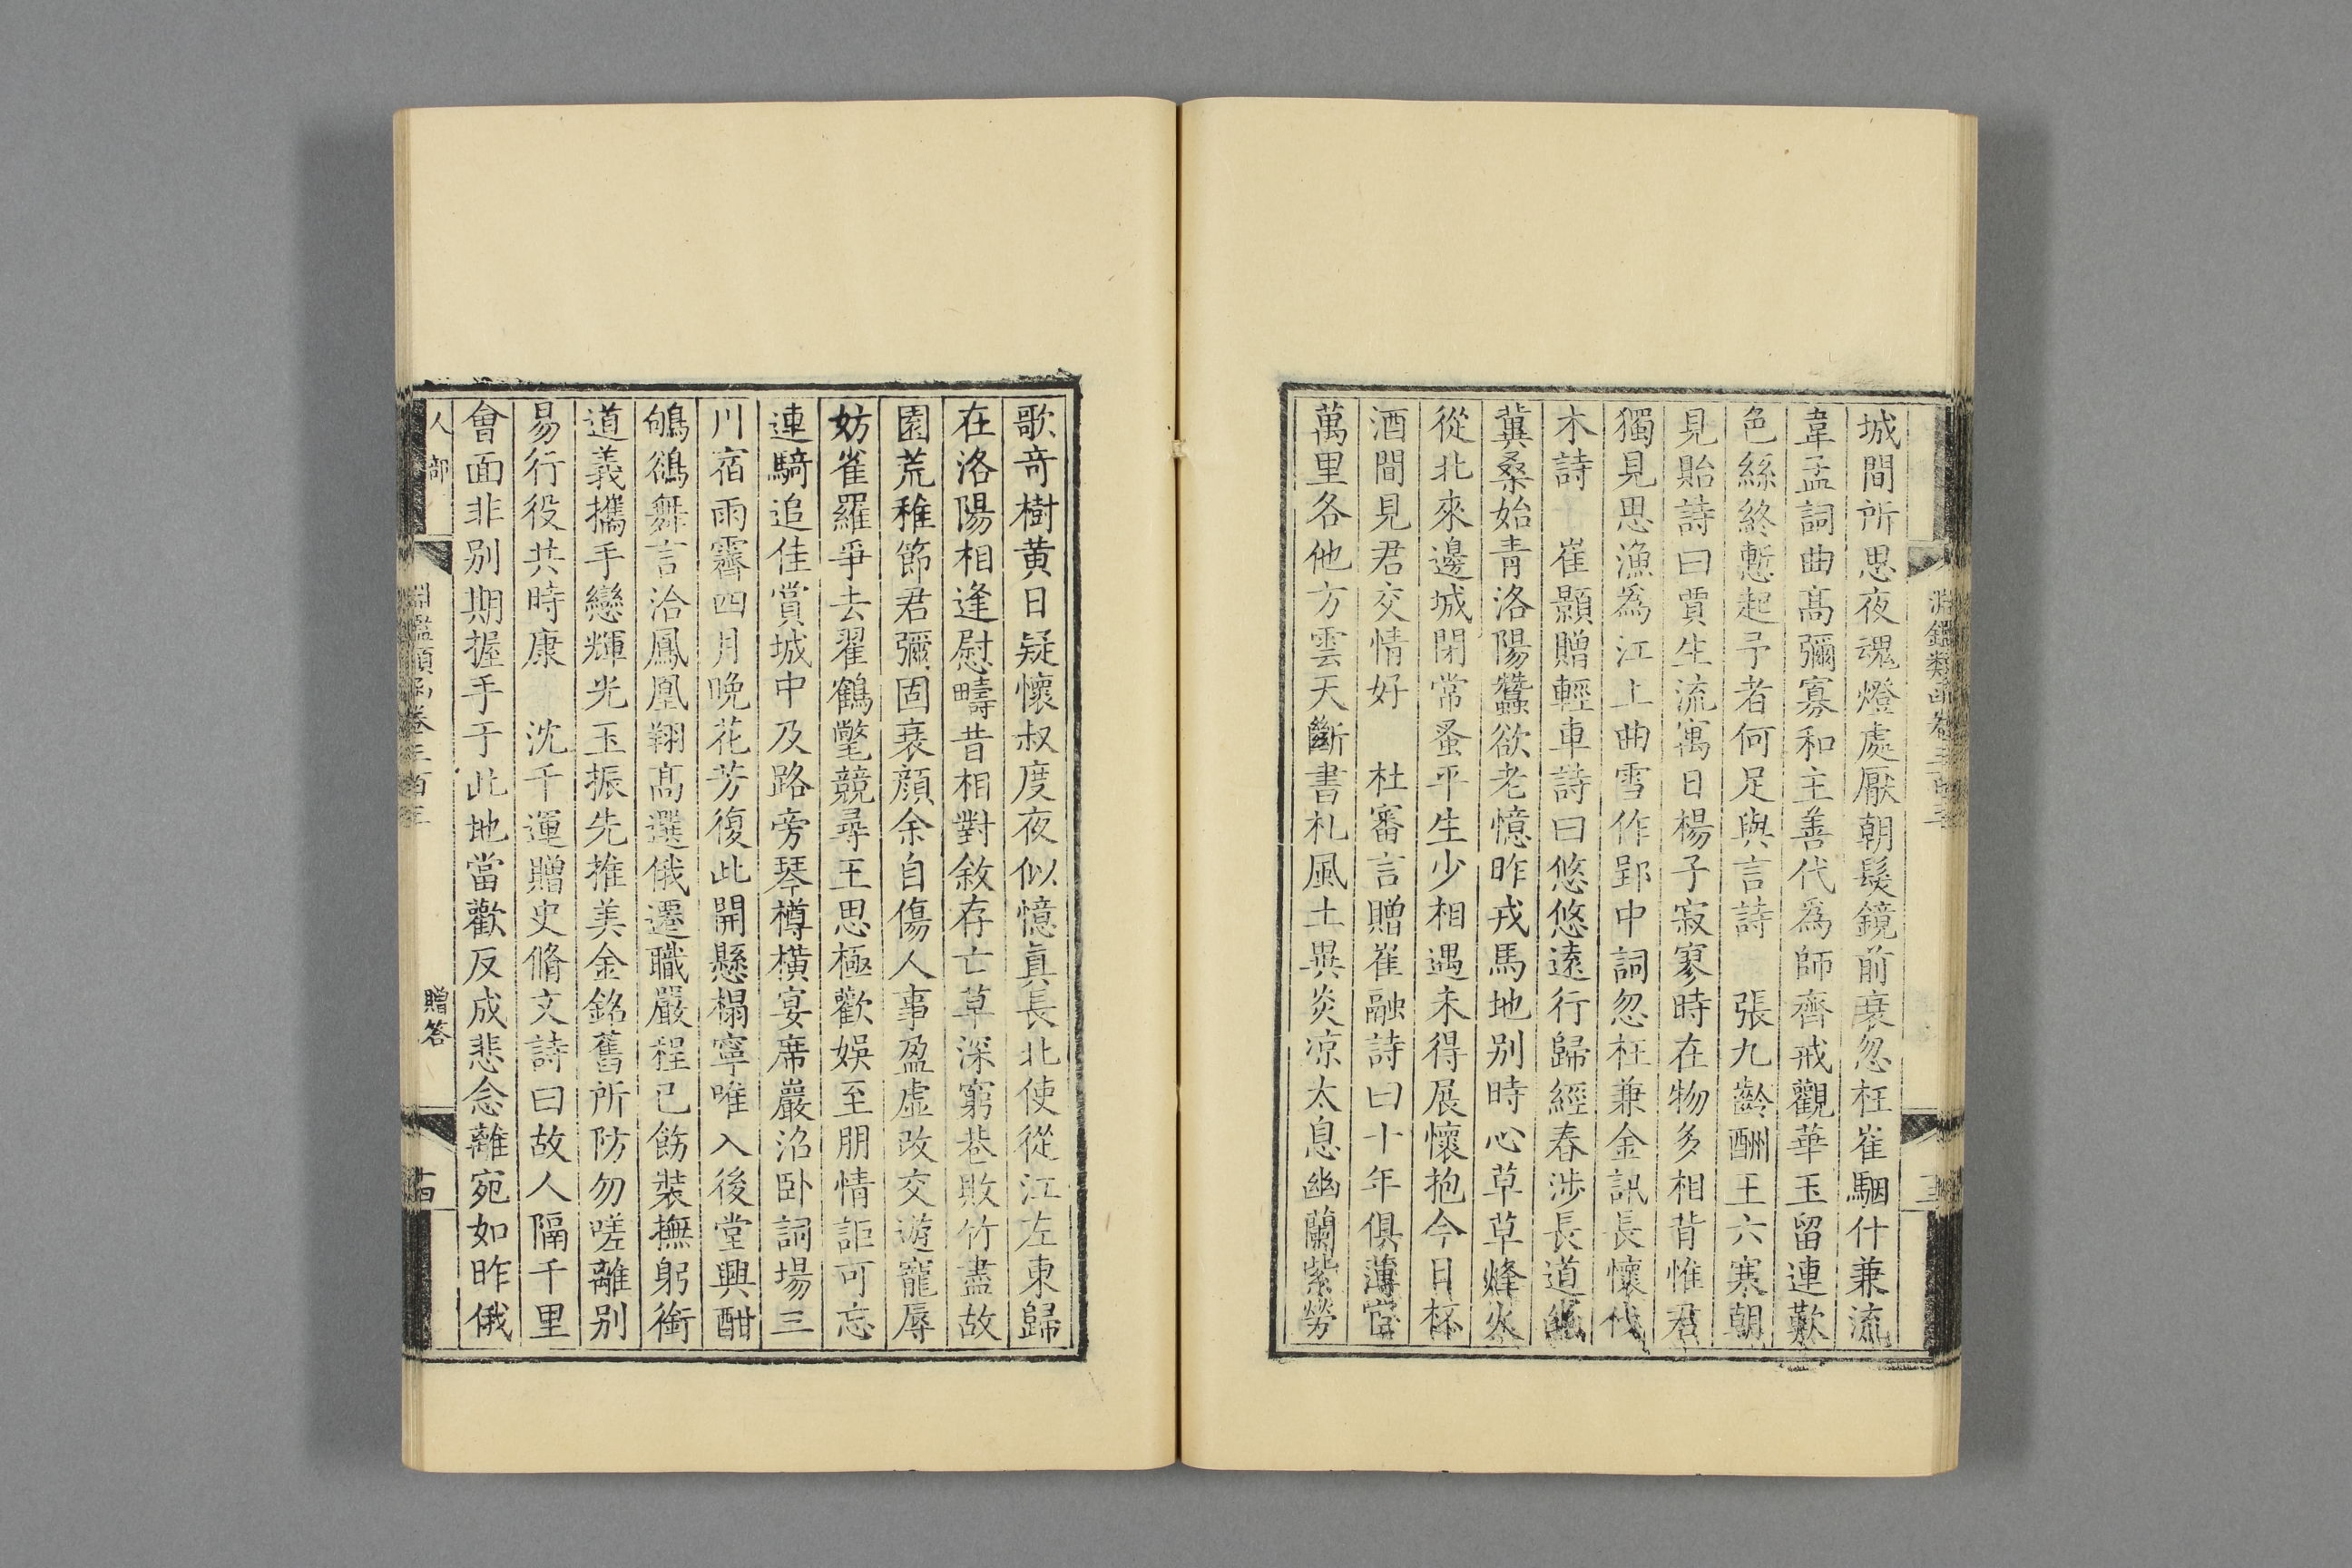 城間所思夜魂燈處厭朝髮鏡前衰忽枉崔駰什兼流
韋孟詞曲高彌寡和主善代為師齊戒觀華玉留連歎
色絲終慙起予者何足與言詩　張九齡酬王六寒朝
見貽詩曰賈生流寓日楊子寂寥時在物多相背惟君
獨見思漁為江上曲雪作郢中詞忽枉兼金訊長懷伐
木詩　崔顥贈輕車詩曰悠悠遠行歸經春涉長道幽
冀桑始青洛陽蠶欲老憶昨戎馬地別時心草草烽火
從北來邊城閉常蚤平生少相遇未得展懷抱今日杯
酒間見君交情好　杜審言贈崔融詩曰十年俱薄宦
萬里各他方雲天斷書札風土異炎凉太息幽蘭紫勞
歌奇樹黄日疑懷叔度夜似憶真長北使從江左東歸
在洛陽相逢慰疇昔相對敘存亡草深窮巷毀竹盡故
園荒稚節君彌固衰顏余自傷人事盈虛改交遊寵辱
妨雀羅爭去翟鶴氅競尋王思極歡娛至朋情詎可忘
連騎追佳賞城中及路旁琴樽橫宴席巖沼卧詞場三
川宿雨霽四月晚花芳復此開懸榻寧唯入後堂興酣
鴝鵒舞言洽鳳凰翔高選俄遷職嚴程已飭裝撫躬銜
道義攜手戀輝光玉振先推美金銘舊所防勿嗟離别
易行役共時康　沈千運贈史脩文詩曰故人隔千里
會面非别期握手于此地當歡反成悲念離宛如昨俄
人部
淵鑑類函卷三百三
贈答
十四